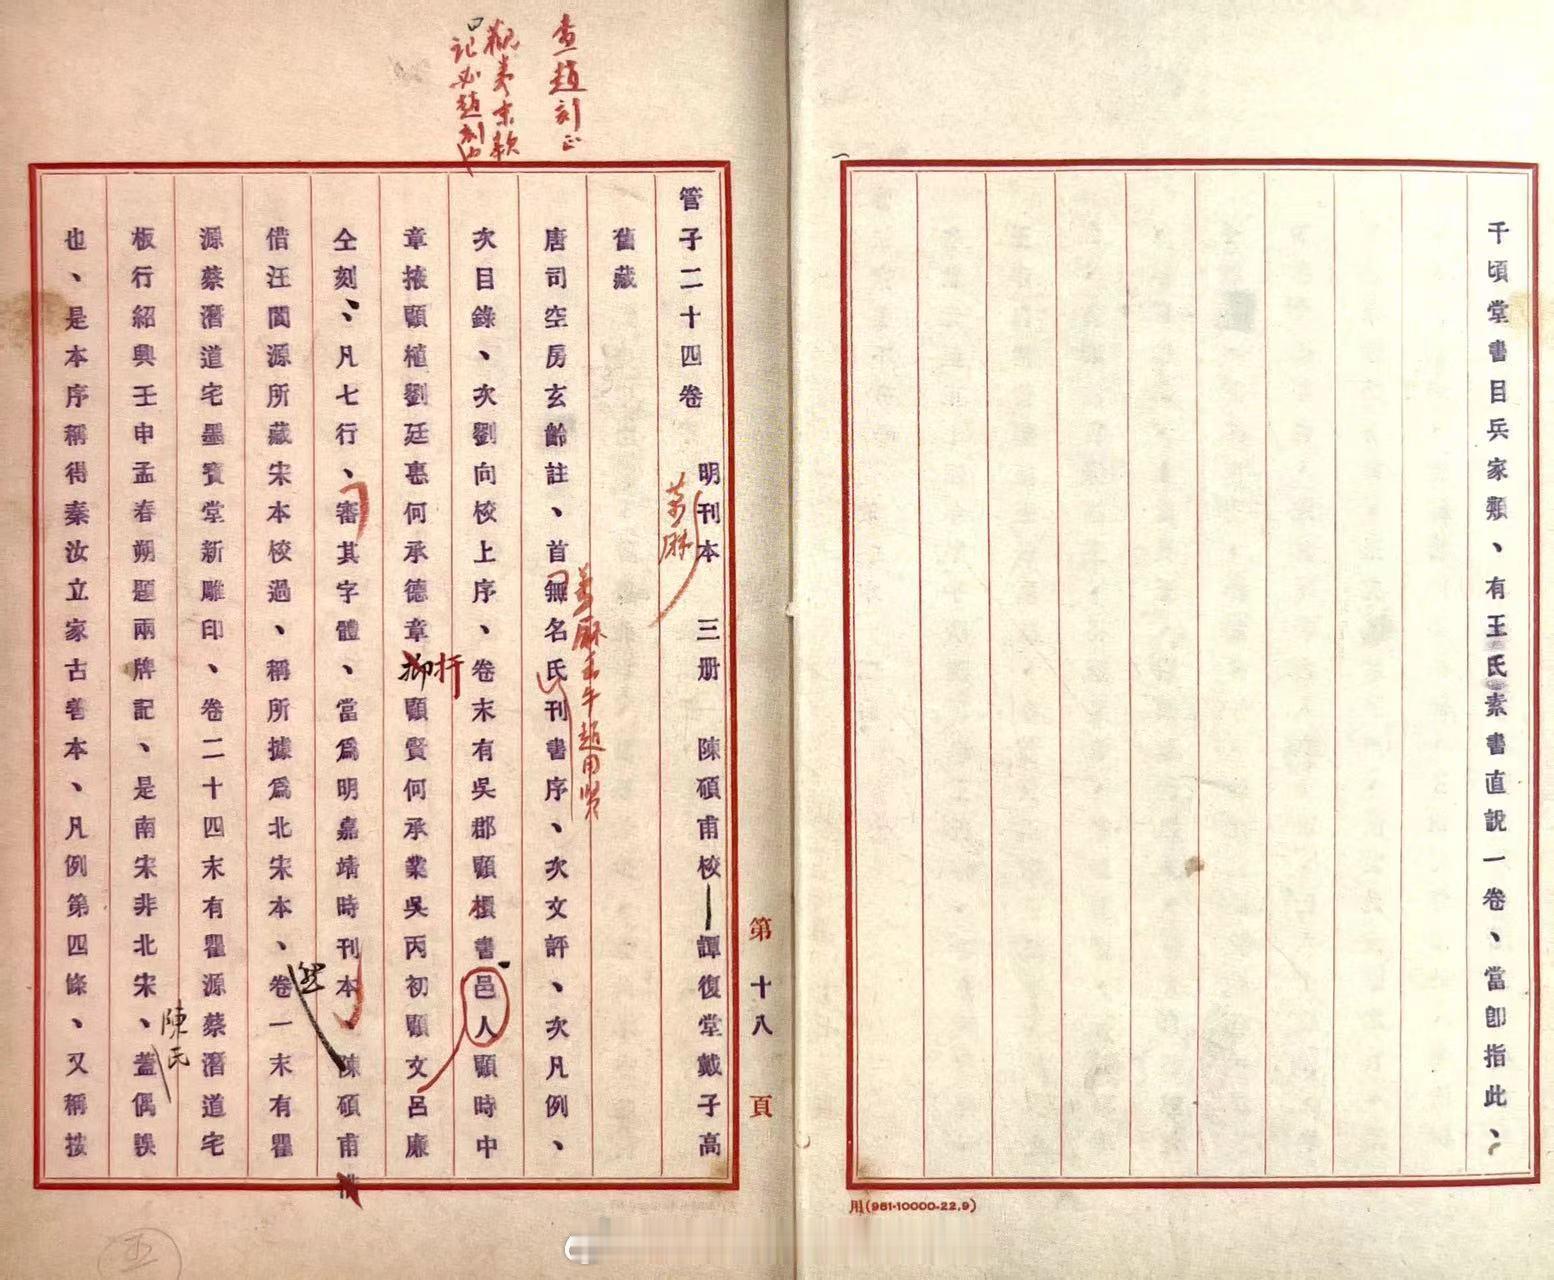 千頃堂書目兵家類、有王氏素書直說一卷、當卽指此、
用(981-10000-22.9)
第十八頁
查趙刻正
觀卷末款
記必趙刻也
管子二十四卷 明刊本 三册 陳碩甫校 譚復堂戴子高
萬曆
舊藏
唐司空房玄齡註、首無名氏刊書序、次文評、次凡例、
萬曆壬午趙用賢
次目錄、次劉向校上序、卷末有吳郡顧櫃書邑人顧時中
章掖顧植劉廷惠何承德章抑顧賢何承業吳丙初顧文呂廉
扞
仝刻、凡七行、審其字體、當爲明嘉靖時刊本、陳碩甫
借汪閬源所藏宋本校過、稱所據爲北宋本、卷一末有瞿
然
源蔡潛道宅墨寳堂新雕印、卷二十四末有瞿源蔡潛道宅
板行紹興壬申孟春朔題兩牌記、是南宋非北宋、蓋偶誤
陳氏
也、是本序稱得秦汝立家古善本、凡例第四條、又稱按
五